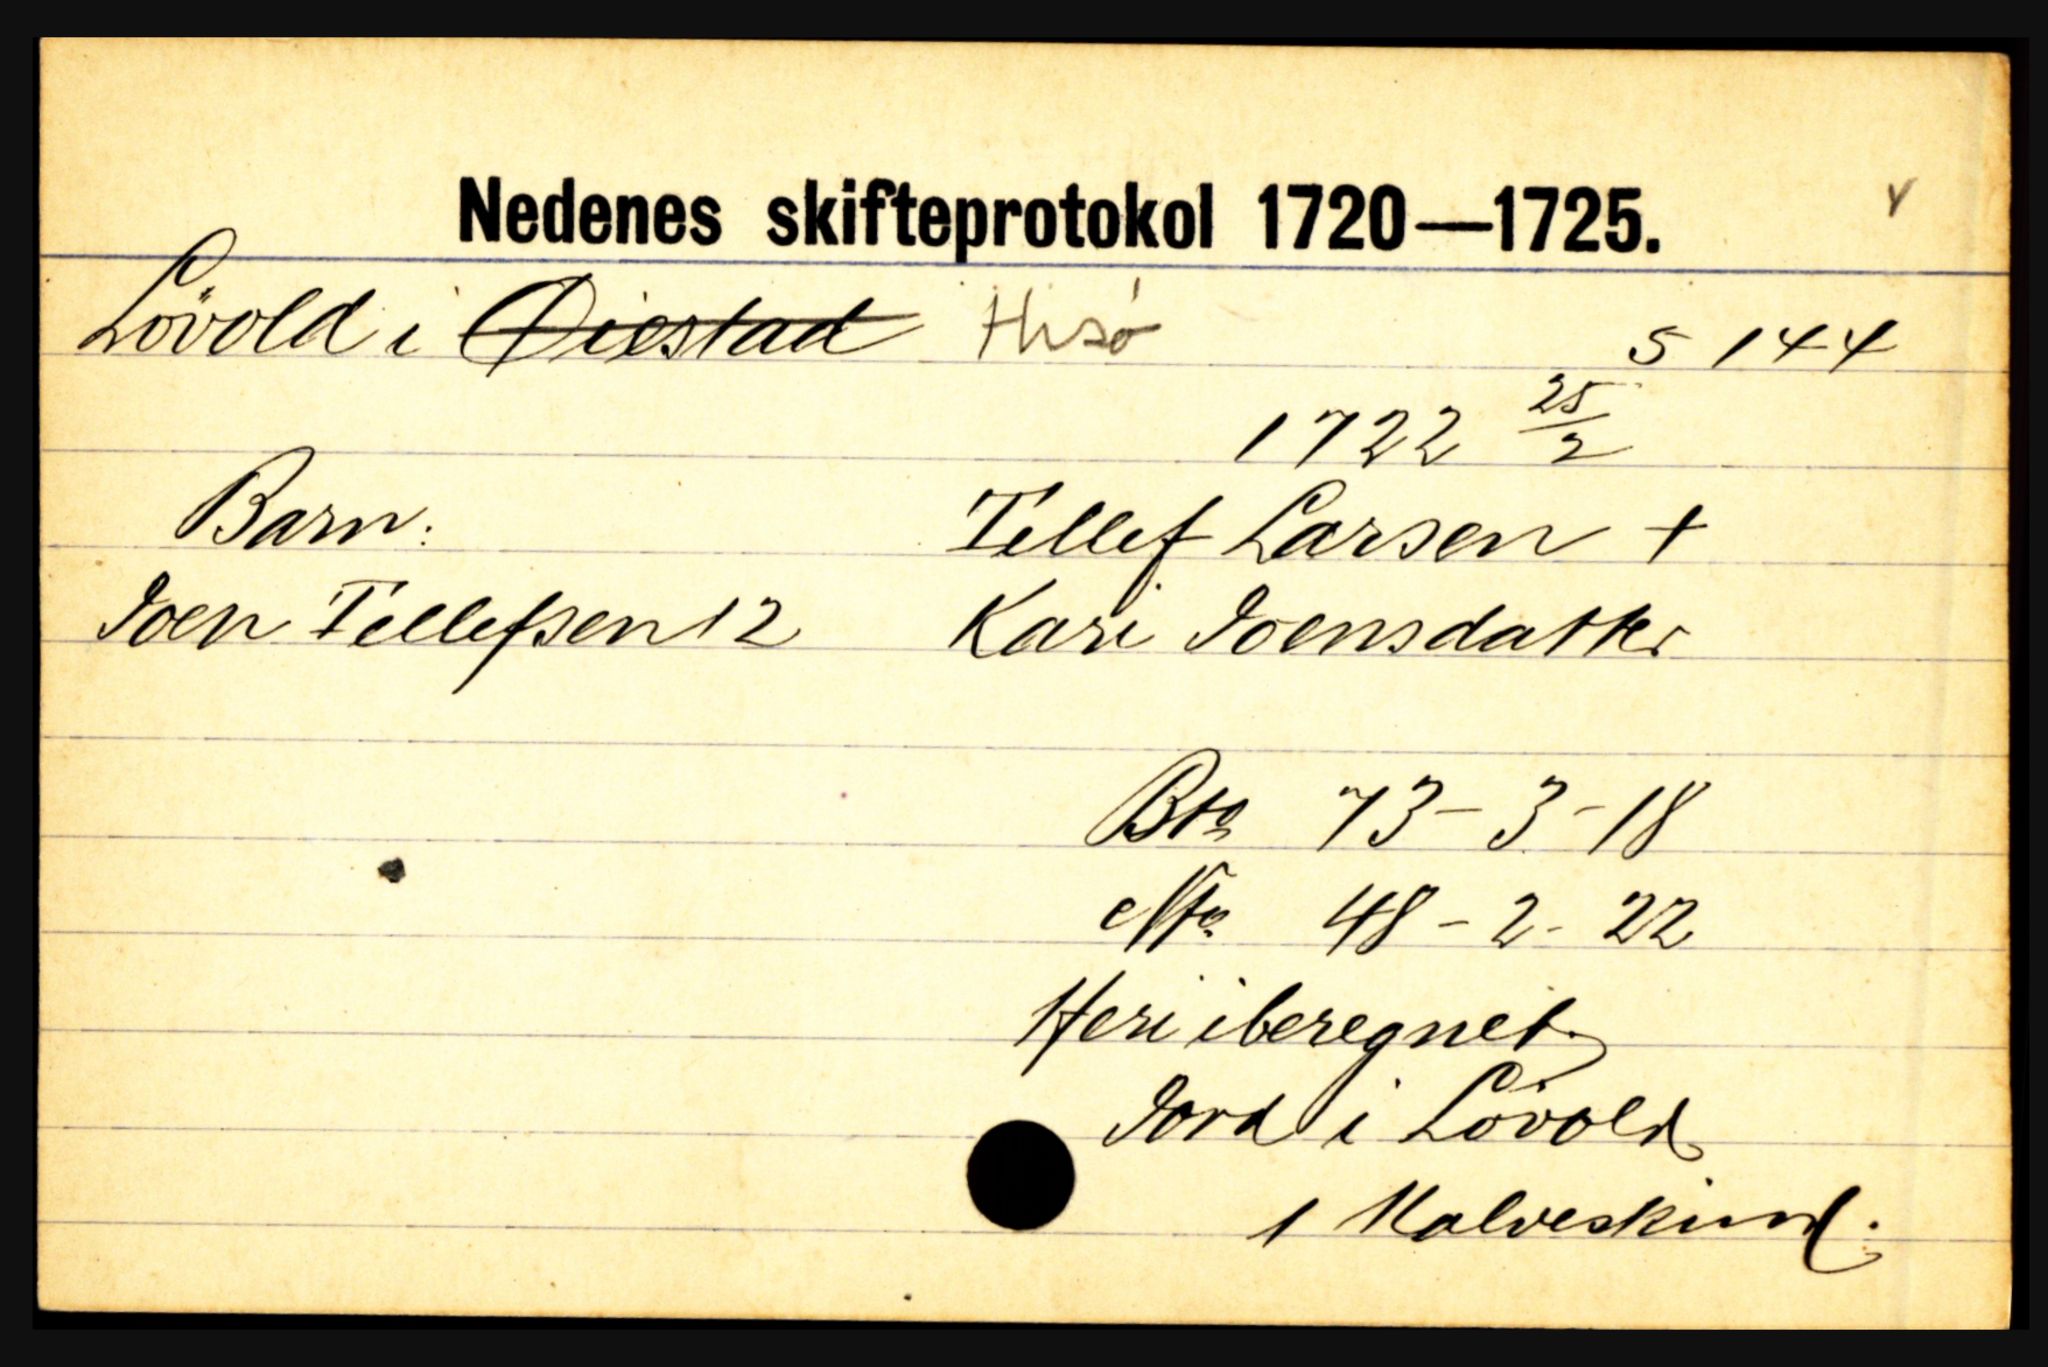 Nedenes skifteprotokol 1720—1725. v
Lövold i Øiestad Hisö S 144
1722 25/2
Barn: Tellef Larsen +
Joen Tellefsen 12 Kari Joensdatter
Bto 73 - 3 - 18
Nto 48 - 2 - 22
Heri iberegnet
Jord i Lövold
1 Kalveskind.